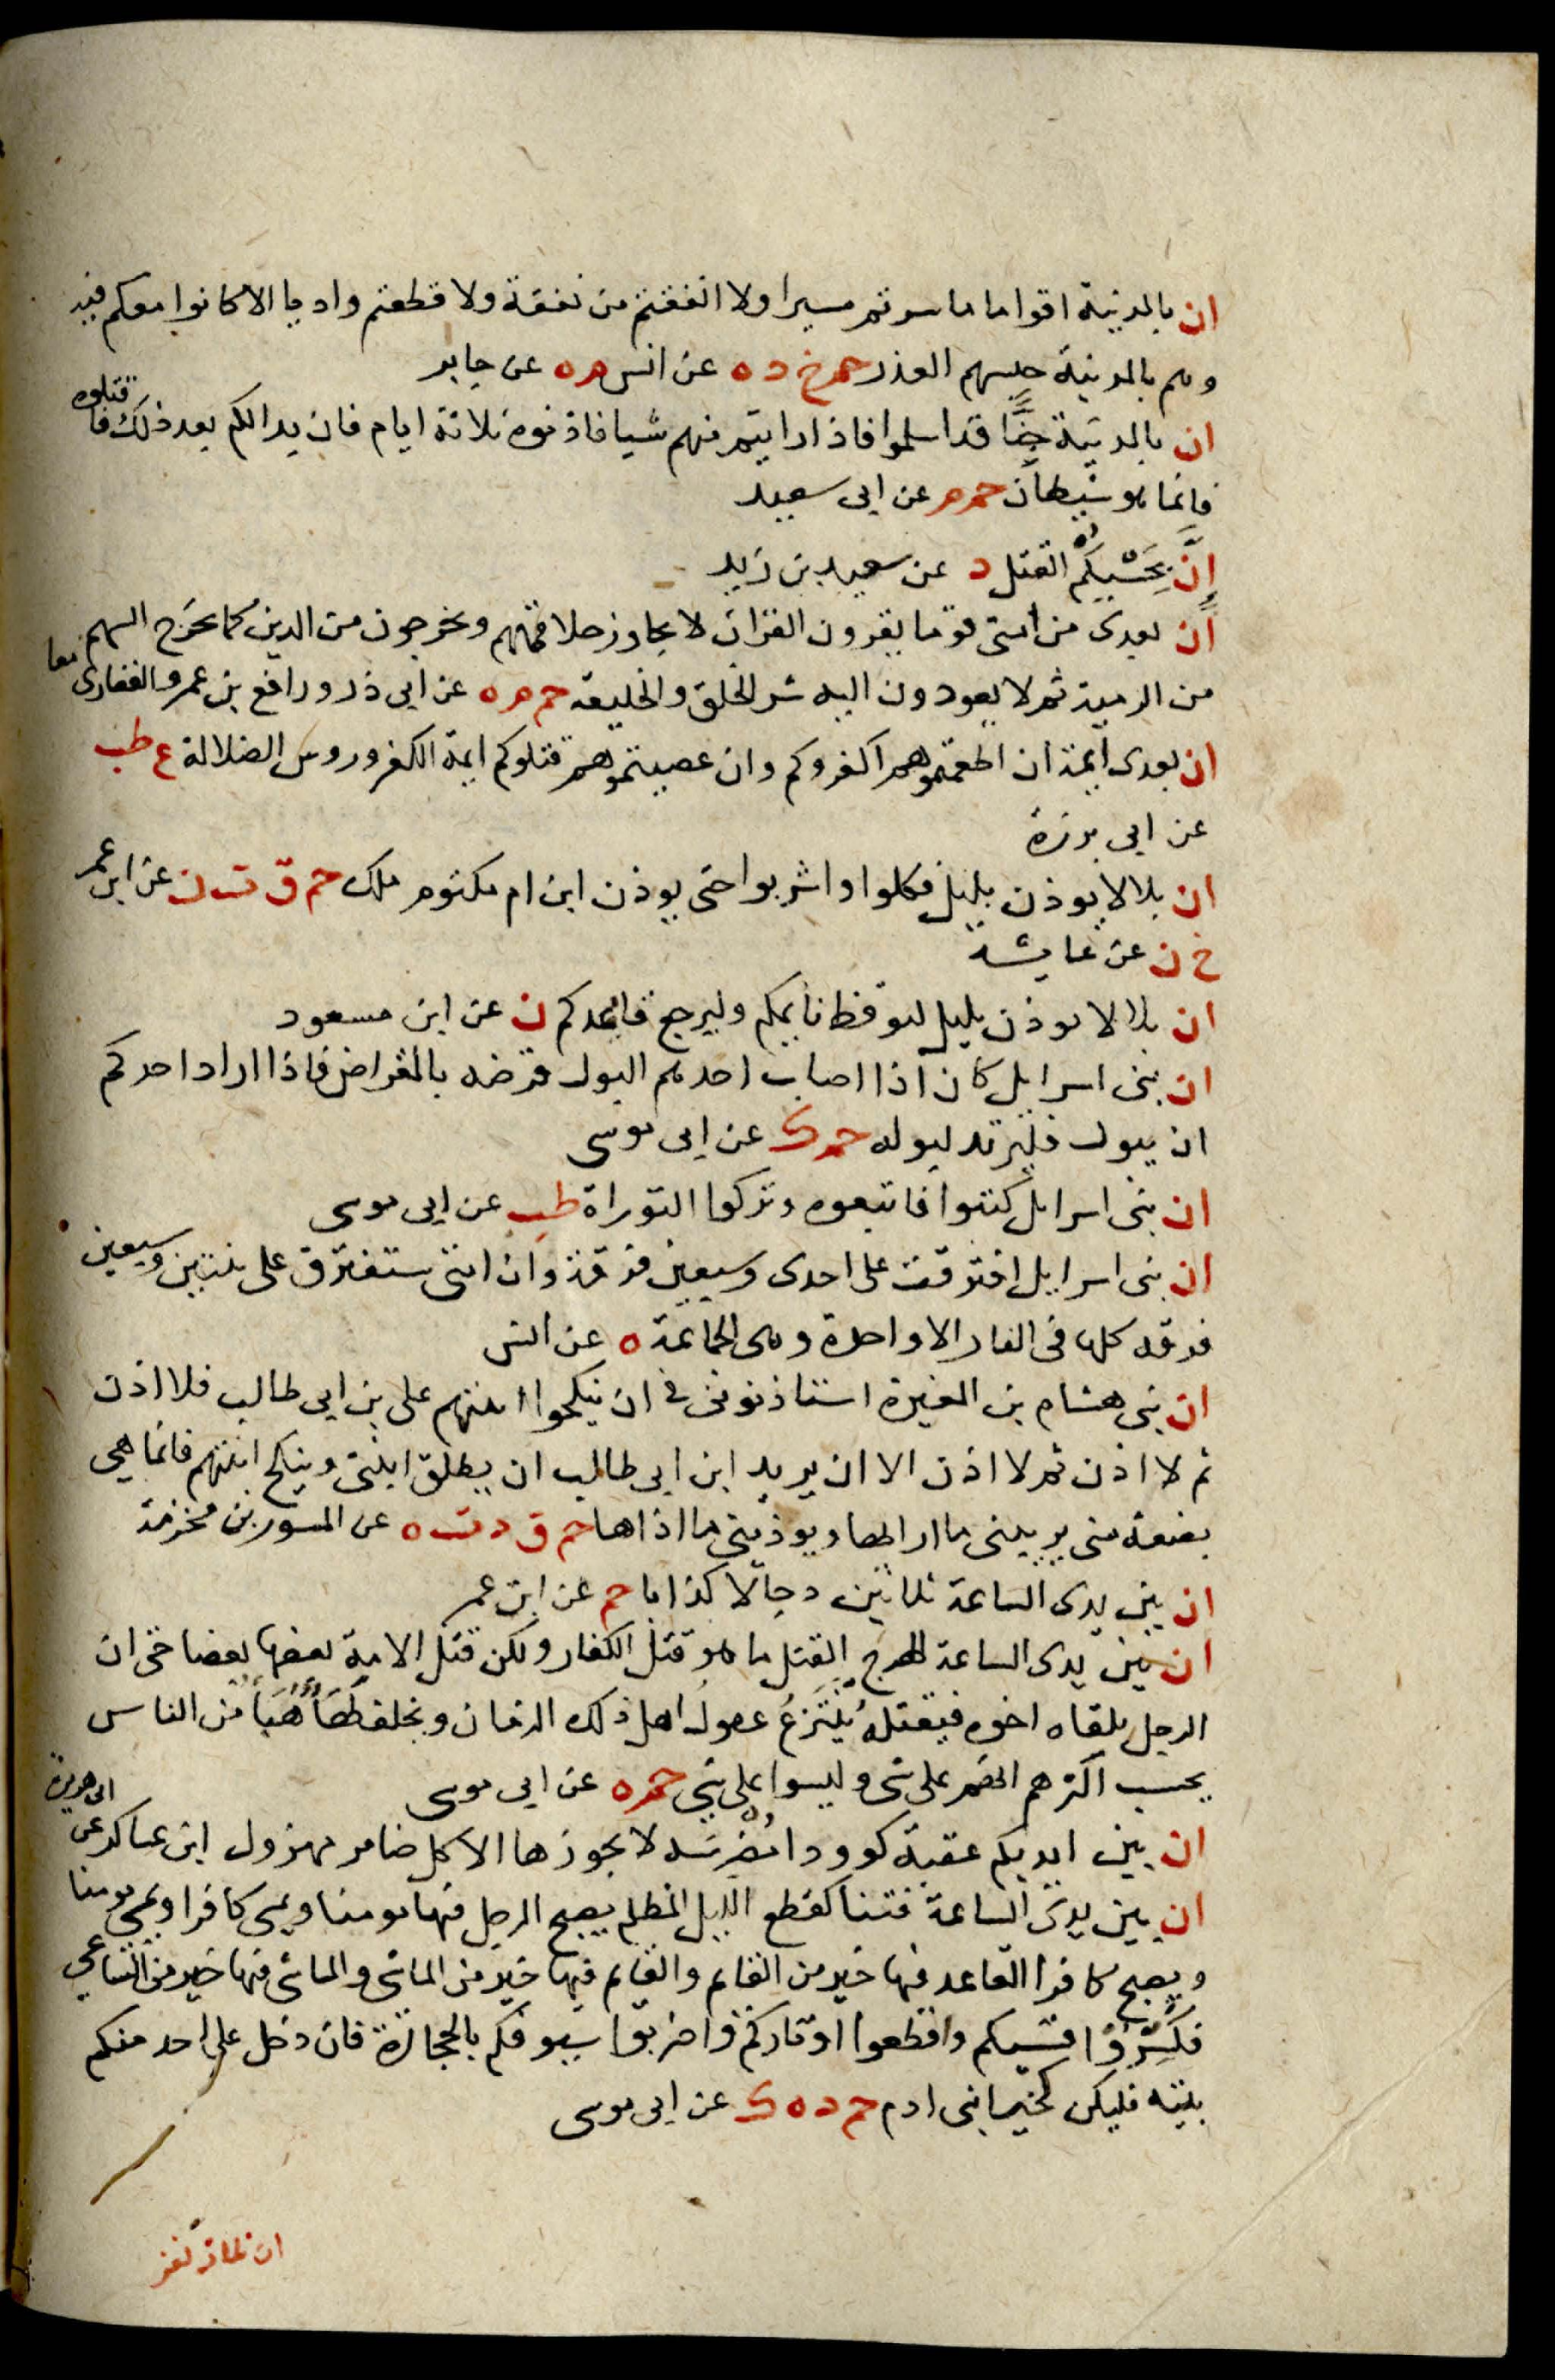 ان بالمدينة اقواما ما سرتم مسيرا ولا انفقتم من نفقة ولا قطعتم واديا الا كانوا معكم فيه
وهم بالمدينة حبسهم العذر حم خ د ه عن انس م ه عن جابر
ان بالمدينة جِنًّا قد اسلموا فاذا رايتم منهم شيا فاذنوه ثلاثة ايام فان بدا لكم بعد ذلك فاقتلوه
فانما هو شيطان حم م عن ابى سعيد
اِنَّ بِحَسْبِكُمُ القتل د عن سعيد بن زيد
ان بعدى من امتى قوما يقرون القران لا يجاوز حلاقمهم ويخرجون من الدين كما يخرج السهم
من الرمية ثم لا يعودون اليه شر الخلق والخليقه حم م ه عن ابى ذر ورافع بن عمرو الغفارى معا
ان بعدى ايمة ان اطعتموهم اكفروكم وان عصيتموهم قتلوكم ايمة الكفر وروس الضلالة ع طب
عن ابى برزة
ان بلالا يوذن بليل فكلوا واشربوا حتى يوذن ابن ام مكتوم ملك حم ق ت ن عن ابن عمر
خ ن عن عايشة
ان بلالا يوذن بليل ليوقظ نايمكم وليرجع قايمكم ن عن ابن مسعود
ان بنى اسرايل كان اذا اصاب احدهم البول قرضه بالمقراض فاذا اراد احدكم
ان يبول فليرتد لبوله حم ك عن ابى موسى
ان بنى اسرايل كتبوا فاتبعوه وتركوا التوراة طب عن ابى موسى
ان بنى اسرايل افترقت على احدى وسبعين فرقة وان امتى ستفترق على ثنتين وسبعين
فرقه كلها فى النار الا واحدة وهى الجماعة ه عن انس
ان بنى هشام بن المغيرة استاذنونى فى ان ينكحوا ابنتهم على بن ابى طالب فلا اذن
ثم لا اذن ثم لا اذن الا ان يريد ابن ابى طالب ان يطلق ابنتى وينكح ابنتهم فانما هى
بضعة منى يريبنى ما ارابها ويوذينى ما اذاها حم ق د ت ه عن المسور بن مخرمة
ان بين يدى الساعة ثلاثين دجالا كذابا حم عن ابن عمر
ان بين يدى الساعة الهرج القتل ما هو قتل الكفار ولكن قتل الامة بعضها بعضا حتى ان
الرجل يلقاه اخوه فيقتله يُنْتَزَعُ عقول اهل ذلك الزمان ويخلف لها هَبَاءٌ من الناس
يحسب اكثرهم انهم على شى وليسوا على شى حم ه عن ابى موسى
ان بين ايديكم عقبة كوودا مُضَرَّسَه لا يجوزها الا كل ضامر مهزول ابن عساكر عن ابى هريرة
ان بين يدى الساعة فتنا كقطع الليل المظلم يصبح الرجل فيها مومنا ويمسى كافرا ويمسى مومنا
ويصبح كافرا القاعد فيها خير من القايم والقايم فيها خير من الماشى والماشى فيها خير من الساعى
فكَسِّرُوا قسيكم واقطعوا اوتاركم واضربوا سيوفكم بالحجارة فان دخل على احد منكم
بيته فليكن كخير ابنى ادم حم د ه ك عن ابى موسى